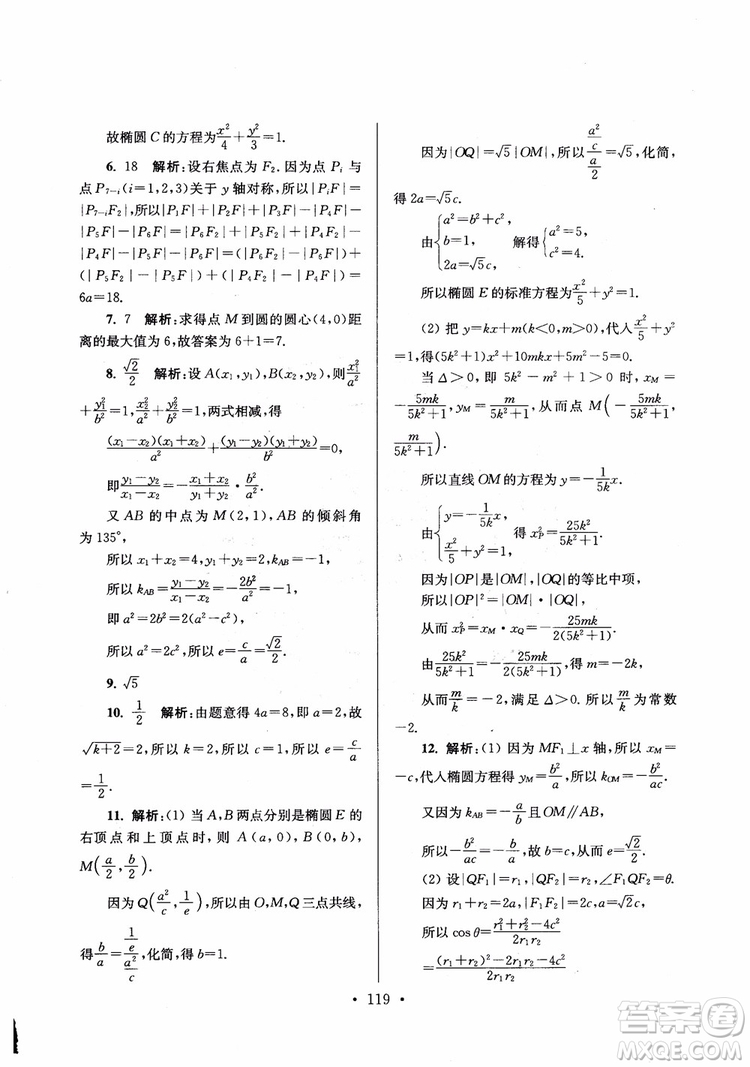 故椭圆 C 的方程为 x²/4 + y²/3 = 1.
6. 18 解析:设右焦点为 F₂. 因为点 Pᵢ 与
点 P₇₋ᵢ(i=1,2,3)关于 y 轴对称,所以|PᵢF|=
|P₇₋ᵢF₂|,所以|P₁F|+|P₂F|+|P₃F|-
|P₄F|-|P₅F|-|P₆F|=|P₆F₂|-|P₆F|
+(|P₅F₂|-|P₅F|)+(|P₄F₂|-|P₄F|)=
6a=18.
7. 7 解析:求得点 M 到圆的圆心(4,0)距
离的最大值为 6,故答案为 6+1=7.
8. √2/2 解析:设 A(x₁,y₁),B(x₂,y₂),x₁²/a²
+y₁²/b²=1,x₂²/a²+y₂²/b²=1,两式相减,得
(x₁-x₂)(x₁+x₂)/a²+(y₁-y₂)(y₁+y₂)/b²=0,
即(y₁-y₂)/(x₁-x₂)·(x₁+x₂)/(y₁+y₂).
又 AB 的中点为 M(2,1),AB 的倾斜角
为 135°,
所以 x₁+x₂=4,y₁+y₂=2,k_AB=-1,
所以 k_AB=(y₁-y₂)/(x₁-x₂)=-2b²/a²=-1,
即 a²=2b²=2(a²-c²),
所以 a²=2c²,所以 e=c/a=√2/2.
9. √5
10. 1/2 解析:由题意得 4a=8,即 a=2,故
√(k+2)=2,所以 k=2,所以 c=1,所以 e=c/a
=1/2.
11. 解析:(1) 当 A,B 两点分别是椭圆 E 的
右顶点和上顶点时,则 A(a,0),B(0,b),
M(a/2,b/2).
因为 Q(a²/c,1/e),所以由 O,M,Q 三点共线,
得 b/a=(1/e)/(a²/c),化简,得 b=1.
因为|OQ|=√5|OM|,所以(a²/c)/(a/2)=√5,化简,
得 2a=√5c.
由{a²=b²+c², b=1, 2a=√5c, 解得{a²=5, c²=4.
所以椭圆 E 的标准方程为 x²/5+y²=1.
(2) 把 y=kx+m(k<0,m>0),代入 x²/5+y²
=1,得(5k²+1)x²+10mkx+5m²-5=0.
当 Δ>0,即 5k²-m²+1>0 时,x_M=
-5mk/(5k²+1),y_M=m/(5k²+1),从而点 M(-5mk/(5k²+1),
m/(5k²+1)).
所以直线 OM 的方程为 y=-1/(5k)x.
由{y=-1/(5k)x, x²/5+y²=1, 得 x_P²=25k²/(5k²+1).
因为|OP|是|OM|,|OQ|的等比中项,
所以|OP|²=|OM|·|OQ|,
从而 x_P²=x_M·x_Q=-25mk/(2(5k²+1)).
由 25k²/(5k²+1)=-25mk/(2(5k²+1)),得 m=-2k,
从而 m/k=-2,满足 Δ>0. 所以 m/k 为常数
-2.
12. 解析:(1) 因为 MF₁⊥x 轴,所以 x_M=
-c,代入椭圆方程得 y_M=b²/a,所以 k_OM=-b²/(ac).
又因为 k_AB=-a/b 且 OM∥AB,
所以-b²/(ac)=-b/a,故 b=c,从而 e=√2/2.
(2) 设|QF₁|=r₁,|QF₂|=r₂,∠F₁QF₂=θ.
因为 r₁+r₂=2a,|F₁F₂|=2c,a=√2c,
所以 cosθ=(r₁²+r₂²-4c²)/(2r₁r₂)
=((r₁+r₂)²-2r₁r₂-4c²)/(2r₁r₂)
· 119 ·
答案圈
MXQE.COM